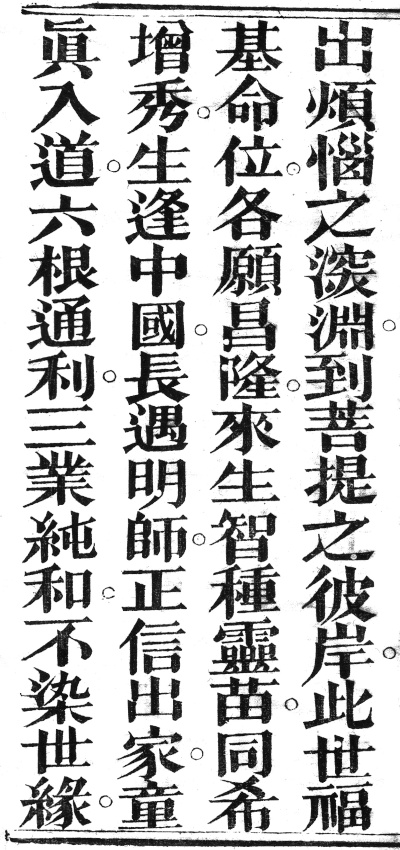 出煩惱之深淵。到菩提之彼岸。此世福
基命位。各願昌隆。來生智種靈苗。同希
增秀。生逢中國。長遇明師。正信出家。童
眞入道。六根通利。三業純和。不染世緣。